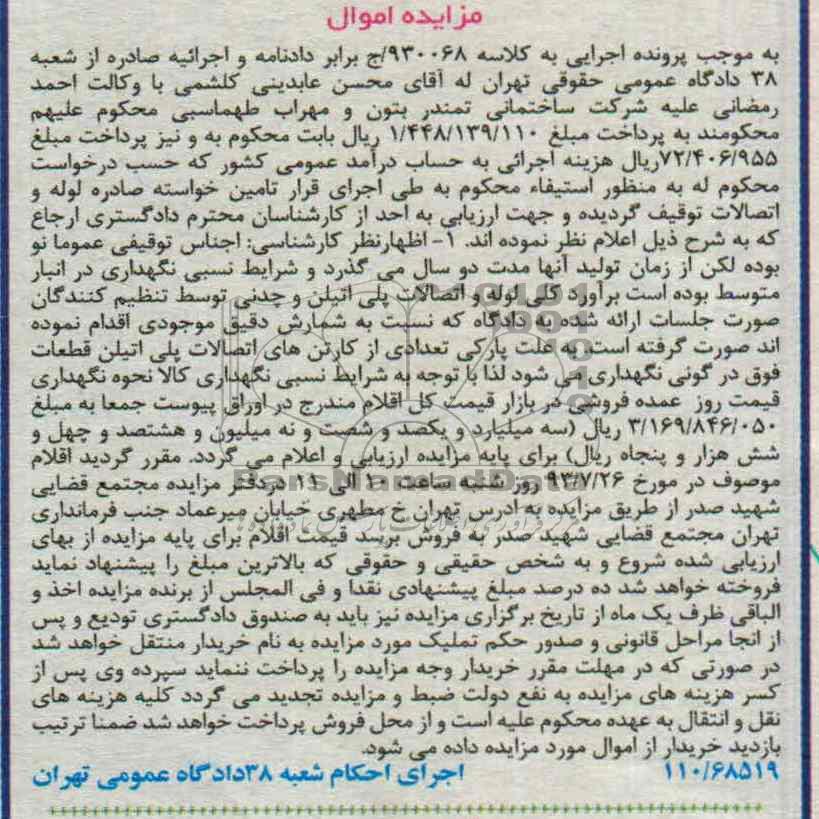 مزایده اموال
به موجب پرونده اجرایی به کلاسه ۹۳۰۰۶۸/ج برابر دادنامه و اجرائیه صادره از شعبه
۳۸ دادگاه عمومی حقوقی تهران له آقای محسن عابدینی کلشمی با وکالت احمد
رمضانی علیه شرکت ساختمانی تمندر بتون و مهراب طهماسبی محکوم علیهم
محکومند به پرداخت مبلغ ۱/۴۴۸/۱۳۹/۱۱۰ ریال بابت محکوم به و نیز پرداخت مبلغ
۷۲/۴۰۶/۹۵۵ریال هزینه اجرائی به حساب درآمد عمومی کشور که حسب درخواست
محکوم له به منظور استیفاء محکوم به طی اجرای قرار تامین خواسته صادره لوله و
اتصالات توقیف گردیده و جهت ارزیابی به احد از کارشناسان محترم دادگستری ارجاع
که به شرح ذیل اعلام نظر نموده اند. ۱- اظهارنظر کارشناسی: اجناس توقیفی عموما نو
بوده لکن از زمان تولید آنها مدت دو سال می گذرد و شرایط نسبی نگهداری در انبار
متوسط بوده است برآورد کلی لوله و اتصالات پلی اتیلن و چدنی توسط تنظیم کنندگان
صورت جلسات ارائه شده به دادگاه که نسبت به شمارش دقیق موجودی اقدام نموده
اند صورت گرفته است، به علت پارکی تعدادی از کارتن های اتصالات پلی اتیلن قطعات
فوق در گونی نگهداری می شود لذا با توجه به شرایط نسبی نگهداری کالا نحوه نگهداری
قیمت روز عمده فروشی در بازار قیمت کل اقلام مندرج در اوراق پیوست جمعا به مبلغ
۳/۱۶۹/۸۴۶/۰۵۰ ریال (سه میلیارد و یکصد و شصت و نه میلیون و هشتصد و چهل و
شش هزار و پنجاه ریال) برای پایه مزایده ارزیابی و اعلام می گردد. مقرر گردید اقلام
موصوف در مورخ ۹۳/۷/۲۶ روز شنبه ساعت ۱۰ الی ۱۱ دردفتر مزایده مجتمع قضایی
شهید صدر از طریق مزایده به ادرس تهران خ مطهری خیابان میرعماد جنب فرمانداری
تهران مجتمع قضایی شهید صدر به فروش برسد قیمت اقلام برای پایه مزایده از بهای
ارزیابی شده شروع و به شخص حقیقی و حقوقی که بالاترین مبلغ را پیشنهاد نماید
فروخته خواهد شد ده درصد مبلغ پیشنهادی نقدا و فی المجلس از برنده مزایده اخذ و
الباقی ظرف یک ماه از تاریخ برگزاری مزایده نیز باید به صندوق دادگستری تودیع و پس
از انجا مراحل قانونی و صدور حکم تملیک مورد مزایده به نام خریدار منتقل خواهد شد
در صورتی که در مهلت مقرر خریدار وجه مزایده را پرداخت ننماید سپرده وی پس از
کسر هزینه های مزایده به نفع دولت ضبط و مزایده تجدید می گردد کلیه هزینه های
نقل و انتقال به عهده محکوم علیه است و از محل فروش پرداخت خواهد شد ضمنا ترتیب
بازدید خریدار از اموال مورد مزایده داده می شود.
۱۱۰/۶۸۵۱۹ اجرای احکام شعبه ۳۸دادگاه عمومی تهران
ParsNamadData